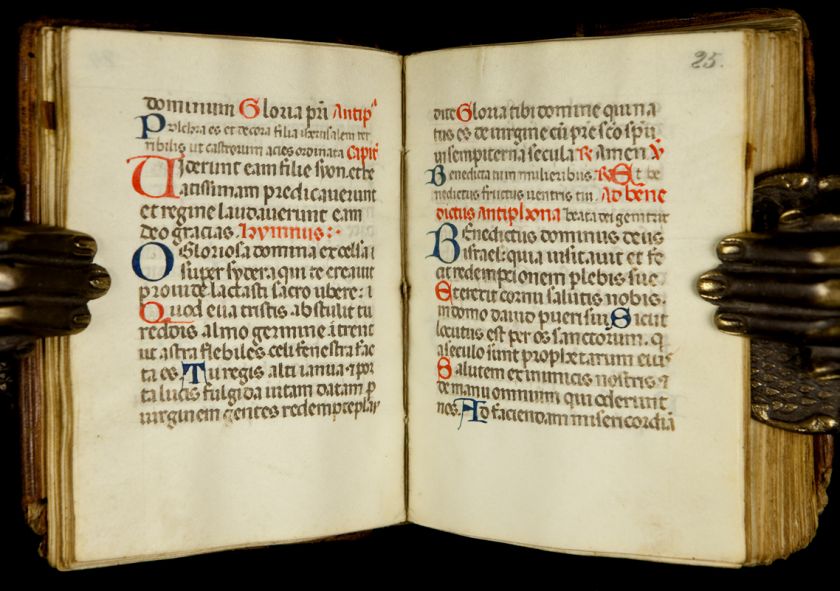 dominum Gloria pri Antip
Pulchra es et decora filia iherusalem ter
ribilis ut castrorum acies ordinata Capit
Uiderunt eam filie syon. et be
atissimam predicauerunt
et regine laudauerunt eam
deo gracias. Hymnus:·
O Gloriosa domina excelsa
super sydera qui te creauit
prouide lactasti sacro ubere: i
Quod eua tristis abstulit tu
reddis almo germine itrent
ut astra flebiles celi fenestra fac
ta es. Tu regis alti ianua et por
ta lucis fulgida uitam datam p
uirginem gentes redempte
25.
dite Gloria tibi domine qui na
tus es de uirgine cu pre sco spu
in sempiterna secula R Amen V
Benedicta in mulieribus R Et be
nedictus fructus uentris tui. Ad bene
dictus Antiphona beata dei genitrix
BEnedictus dominus deus
israel: quia uisitauit et fe
cit redempcionem plebis sue
Et erexit cornu salutis nobis.
in domo dauid pueri sui Sicut
locutus est per os sanctorum. q
a seculo sunt prophetarum eius
Salutem ex inimicis nostris et
de manu omnium qui oderunt
nos. Ad faciendam misericordia